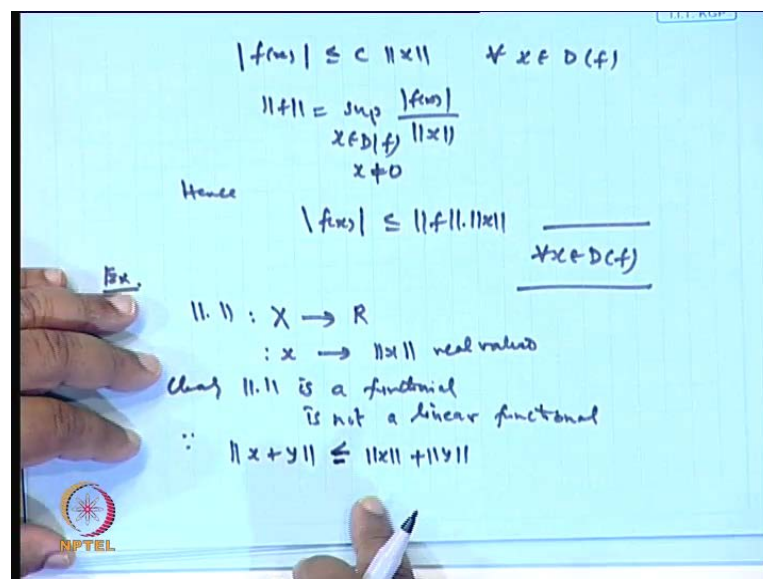 I.I.T. KGP
|f(x)| ≤ C ||x|| ∀ x ∈ D(f)
||f|| = sup |f(x)| / ||x||
x ∈ D(f)
x ≠ 0
Hence
|f(x)| ≤ ||f||.||x||
∀ x ∈ D(f)
Ex.
||.|| : X → R
: x → ||x|| real values
Clearly ||.|| is a functional
is not a linear functional
∵ ||x + y|| ≤ ||x|| + ||y||
NPTEL